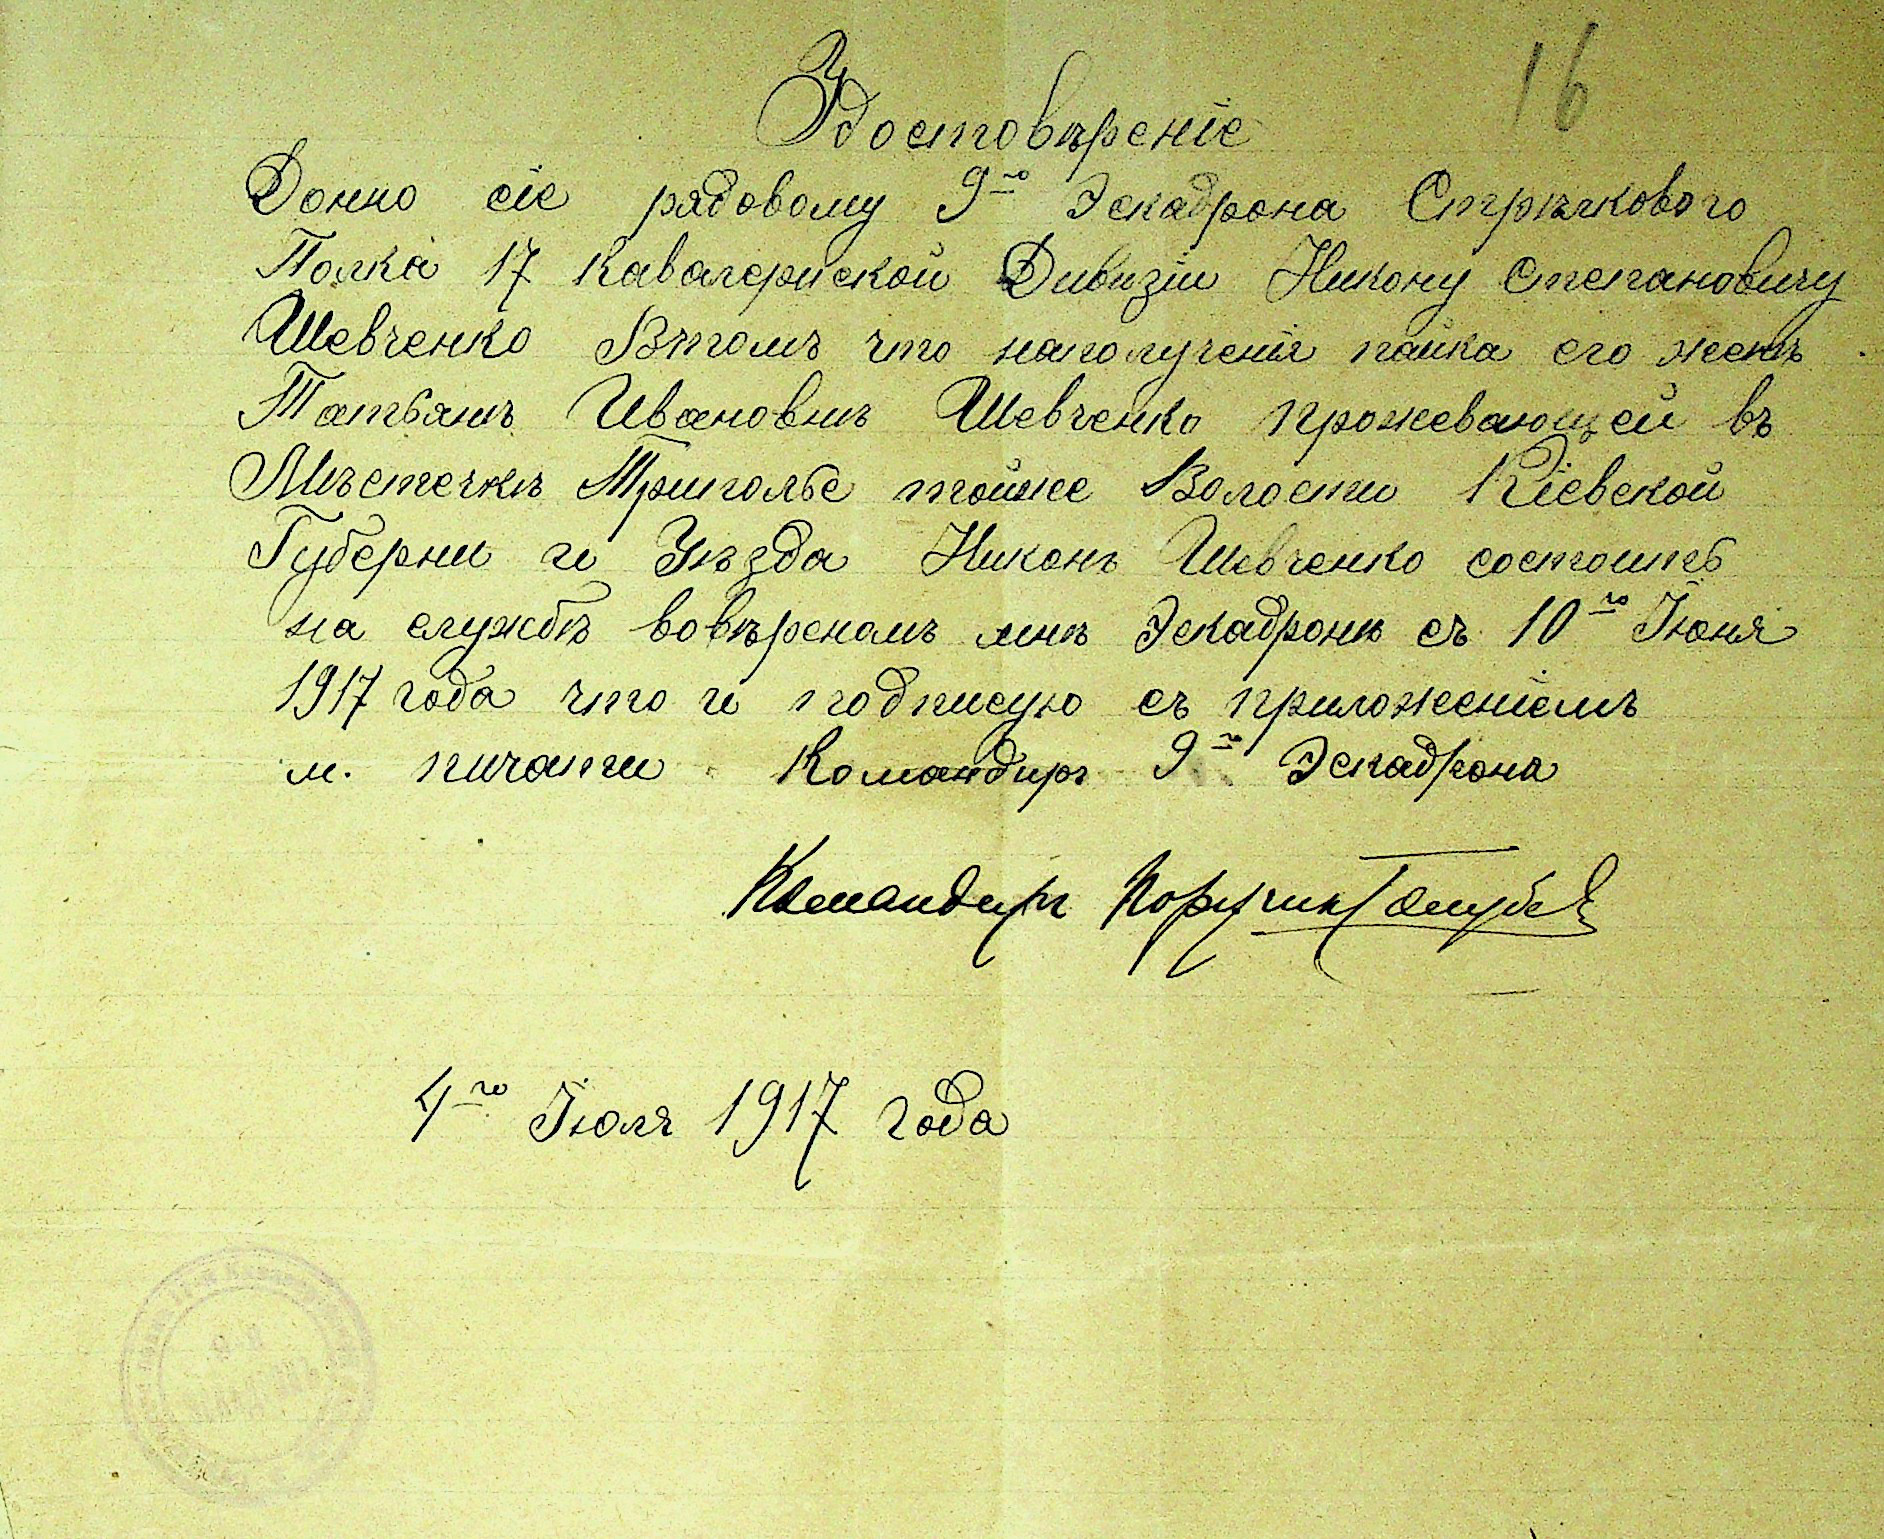 16
Удостовѣреніе
Донно сіе рядовому 9го Эскадрона Стрѣлкового
Полка 17 Кавалериской Дивизіи Никону Степановичу
Шевченко Втомъ что наполученія пайка его женѣ
Татьянѣ Ивановнѣ Шевченко прожевающей въ
Мѣстечкѣ Триполье тойже Волости Кіевской
Губерни и Уѣзда Никонъ Шевченко состоитъ
на службѣ вовѣреномъ мнѣ Эскадронѣ съ 10го Іюня
1917 года что и подписую съ приложеніемъ
м. пичати Командиръ 9го Эскадрона
Командиръ Поручик Голубев
4го Іюля 1917 года